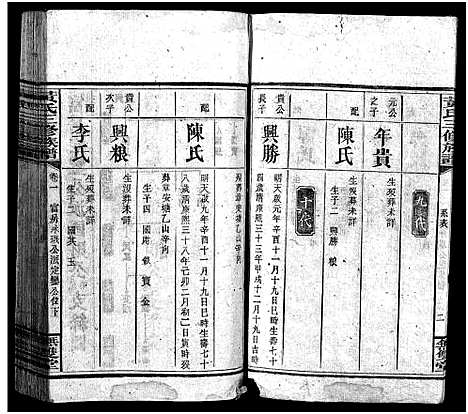 黃氏三修族譜
系表
二
九代
元公之子
年貴
生歿葬未詳
配
陳氏
生歿葬未詳
生子二 興勝 粮
十代
貴公長子
興勝
明天啟元年辛酉十一月十九日巳時生壽七十
四歲清康熙三十三年甲戌十二月十九日吉時
配
陳氏
明天啟九年辛酉十一月十九日巳時生壽七十
八歲清康熙三十八年己卯二月初二日寅時歿
葬草安塘乙山辛向
生子四 國 寶 金
貴公次子
興粮
生歿葬未詳
配
李氏
生歿葬未詳
生子二 國 玉
黃氏三修族譜
卷一